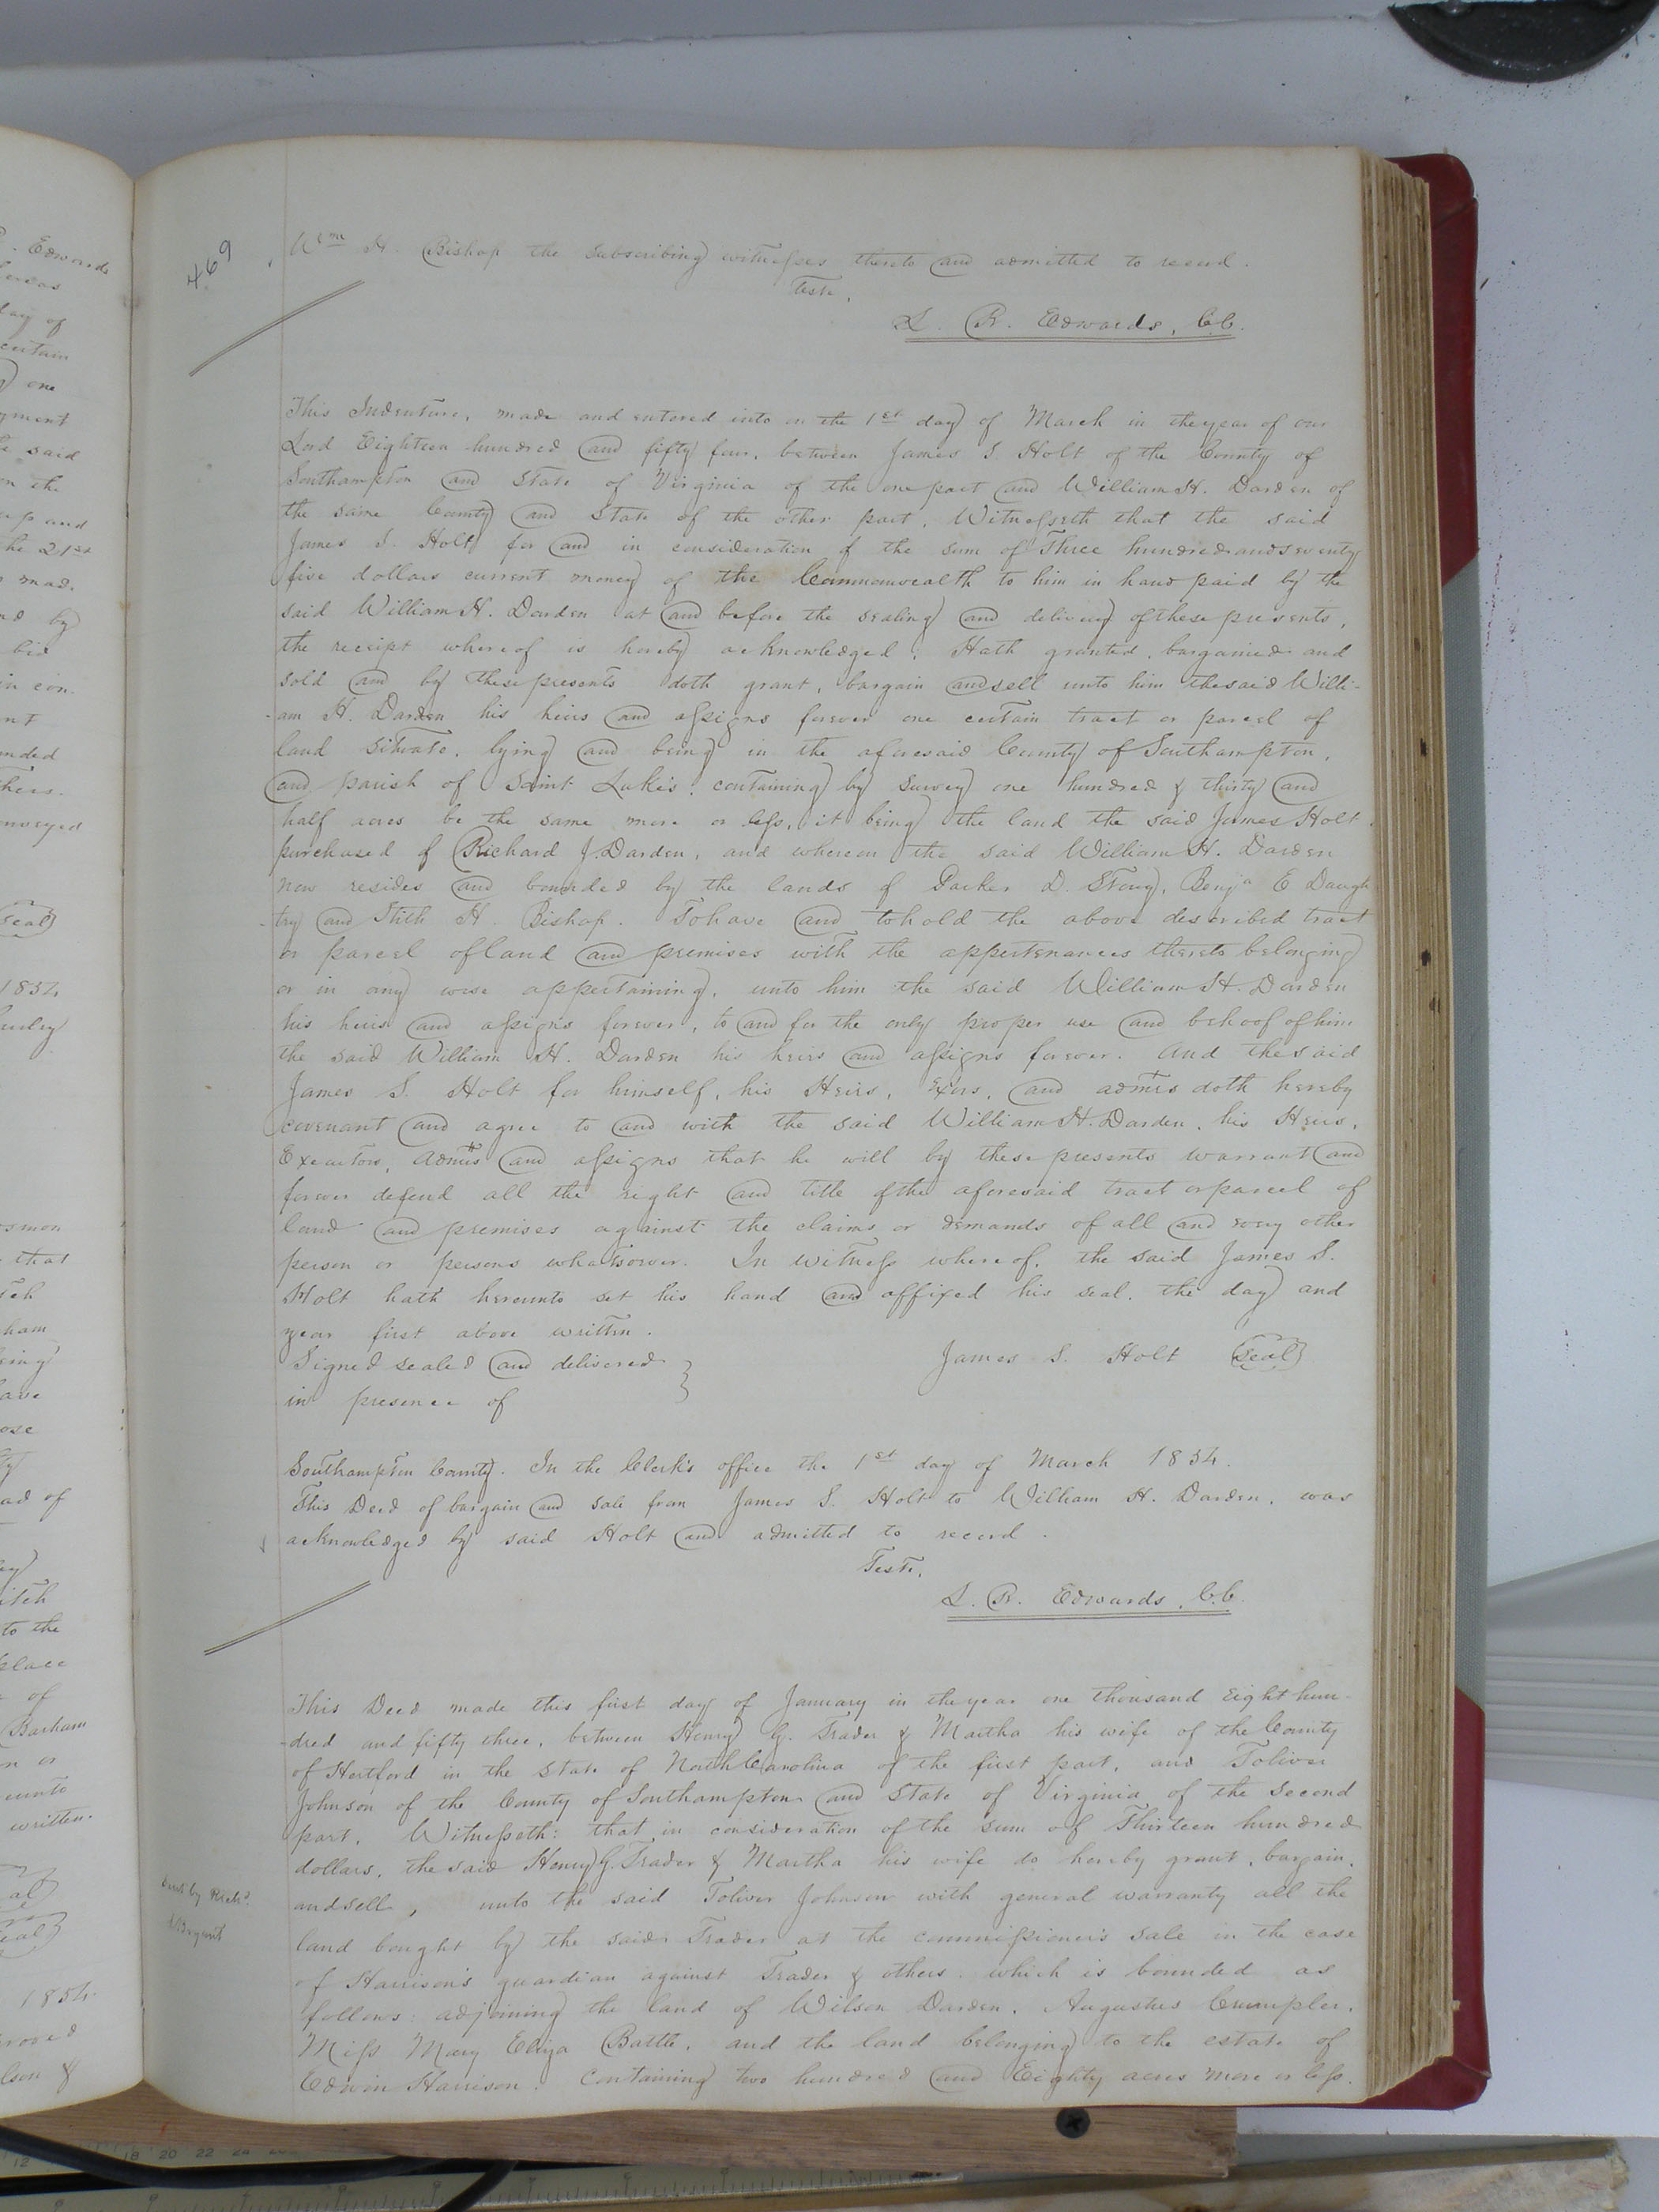 469
Wm H. Bishop the subscribing witnesses thereto and admitted to record.
Teste,
L. R. Edwards, C.C.
This Indenture, made and entered into on the 1st day of March in the year of our
Lord Eighteen hundred and fifty four, between James S. Holt of the County of
Southampton and State of Virginia of the one part and William H. Darden of
the same County and State of the other part, Witnesseth that the said
James S. Holt for and in consideration of the sum of Three hundred and seventy
five dollars current money of the Commonwealth to him in hand paid by the
said William H. Darden at and before the sealing and delivery of these presents,
the receipt whereof is hereby acknowledged, Hath granted, bargained and
sold and by these presents doth grant, bargain and sell unto him the said Willi-
-am H. Darden his heirs and assigns forever one certain tract or parcel of
land situate, lying and being in the aforesaid County of Southampton,
and parish of Saint Luke's, containing by survey one hundred & thirty and
half acres be the same more or less, it being the land the said James Holt
purchased of Richard J. Darden, and whereon the said William H. Darden
now resides and bounded by the lands of Parker D. Story, Benja E Daugh
-try and Stith H. Bishop. To have and to hold the above described tract
or parcel of land and premises with the appertenances thereto belonging
or in any wise appertaining, unto him the said William H. Darden
his heirs and assigns forever, to and for the only proper use and behoof of him
the said William H. Darden his heirs and assigns forever. And the said
James S. Holt for himself, his Heirs, Exors, and admrs doth hereby
covenant and agree to and with the said William H. Darden, his Heirs,
Executors, Admrs and assigns that he will by these presents warrant and
forever defend all the right and title of the aforesaid tract or parcel of
land and premises against the claims or demands of all and every other
person or persons whatsoever. In witness whereof, the said James S.
Holt hath hereunto set his hand and affixed his seal, the day and
year first above written.
Signed sealed and delivered } James S. Holt (Seal)
in presence of
Southampton County. In the Clerk's office the 1st day of March 1854.
This Deed of bargain and sale from James S. Holt to William H. Darden, was
acknowledged by said Holt and admitted to record.
Teste,
L. R. Edwards, C.C.
This Deed made this first day of January in the year one thousand Eight hun-
-dred and fifty three, between Henry G. Trader & Martha his wife of the County
of Hertford in the State of North Carolina of the first part, and Toliver
Johnson of the County of Southampton and State of Virginia of the second
part, Witnesseth: that in consideration of the sum of Thirteen hundred
dollars, the said Henry G. Trader & Martha his wife do hereby grant, bargain,
and sell, unto the said Toliver Johnson with general warranty all the
land bought by the said Trader at the commissioner's sale in the case
of Harrison's guardian against Trader & others, which is bounded as
follows: adjoining the land of Wilson Darden, Augustus Crumpler,
Miss Mary Eliza Battle, and the land belonging to the estate of
Edwin Harrison. Containing two hundred and Eighty acres more or less.